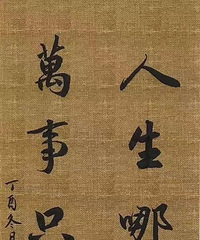 人生哪
萬事只
丁酉冬月